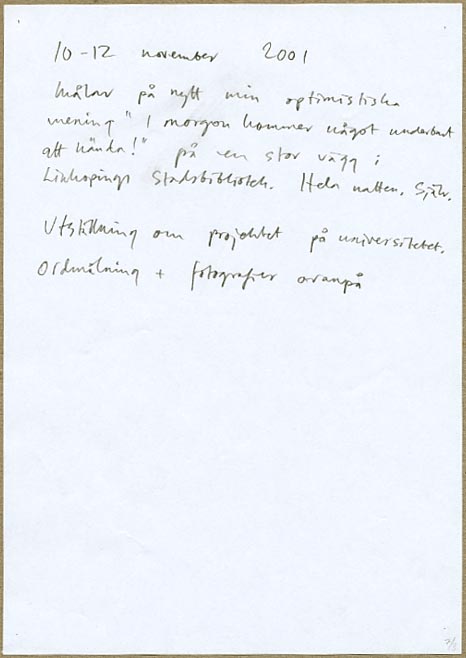 10-12 november 2001
målar på nytt min optimistiska
mening "I morgon kommer något underbart
att hända!" på en stor vägg i
Linköpings Stadsbibliotek. Hela natten. Själv.
Utställning om projektet på universitetet.
Ordmålning + fotografier ovanpå